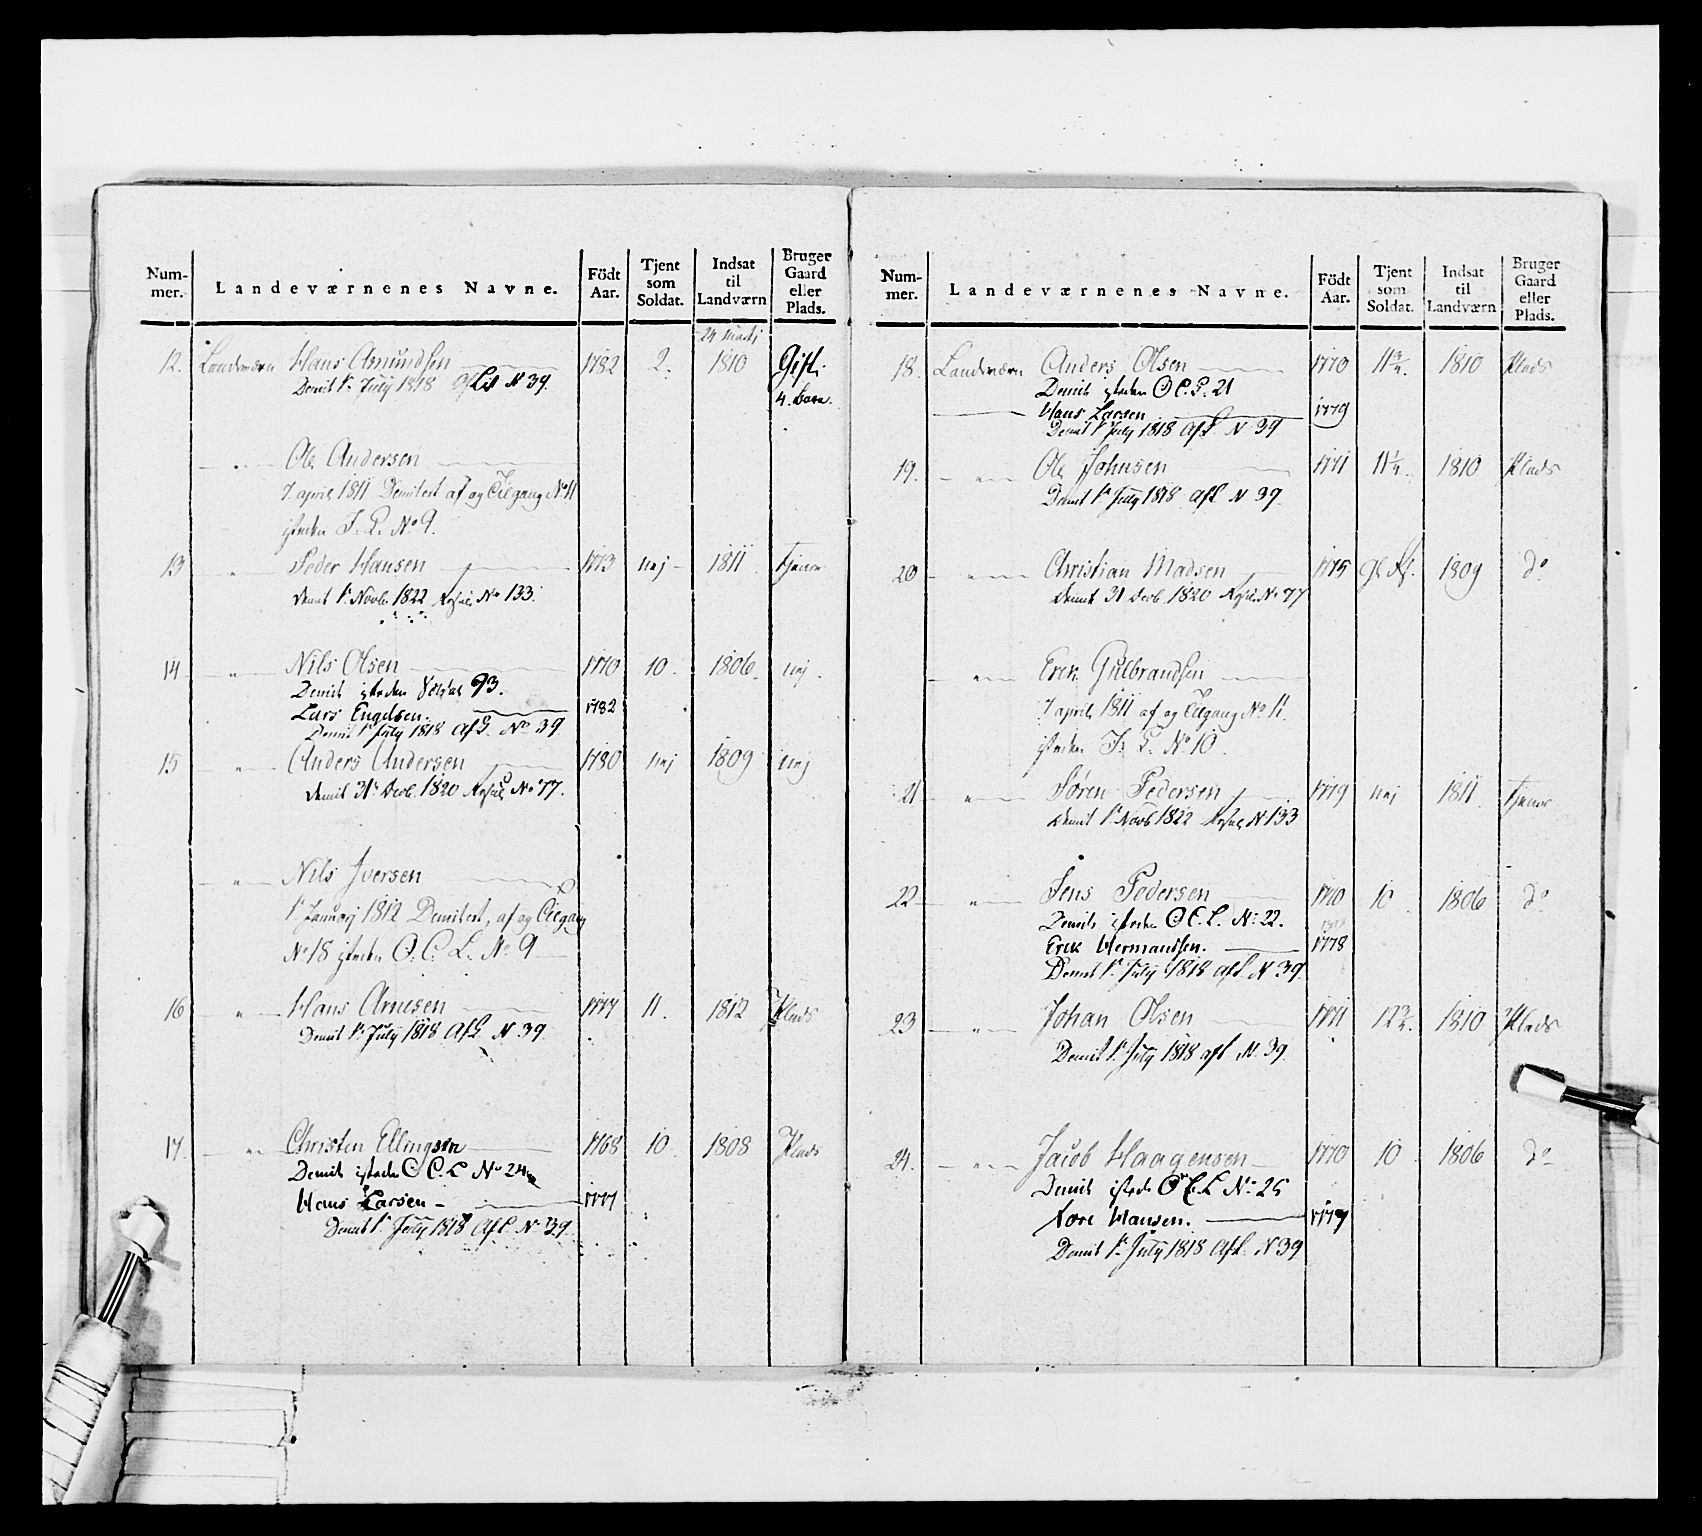 Num-
mer.
Landeværnenes Navne.
Födt
Aar.
Tjent
som
Soldat.
Indsat
til
Landværn
Bruger
Gaard
eller
Plads.
24 Martj
12. Landeværn Hans Amundsen 1782 2. 1810 Gift.
Demit 1ste July 1818 Afl. N 39. 4. Børn.
— " — Ole Andersen
7 april 1811 Demitert af og Tilgang No 11
isteden I. L. No 9.
13 " Peder Hansen 1773 nej 1811 tjener
Demit 1ste Novb. 1822 No 133.
14 " Nils Olsen 1770 10. 1806. nej.
Demit isteden 93.
Lars Engelsen. 1782
Demit 1ste July 1818 Afl. No 39
15 " Anders Andersen 1780 nej 1809 nej
Demit 31te Decb. 1820 No 77.
— " — Nils Iversen
1ste Januarj 1812 Demitert, af og Tilgang
No 18 isteden O. C. L. No 9
16 " Hans Arnesen 1777 11. 1812 Plads
Demit 1ste July 1818 Afl. N 39.
17. " Christen Ellingsen 1768 10. 1808 Plads
Demit isteden O C. L No 24
Hans Larsen — 1777
Demit 1ste July 1818 Afl. No 39.
Num-
mer.
Landeværnenes Navne.
Födt
Aar.
Tjent
som
Soldat.
Indsat
til
Landværn
Bruger
Gaard
eller
Plads.
18. Landeværn Anders Olsen 1770 11 3/4. 1810 Plads
Demit isteden O C. L. 21
Hans Larsen 1779
Demit 1ste July 1818 Afl. N 39
19. — " — Ole Johnsen 1771 11 1/4. 1810 Plads
Demit 1ste July 1818 Afl N 39.
20 — " — Christian Madsen 1775 1809 do
Demit 31 Decb. 1820 No 77
— " — Erek Gulbrandsen
7 april 1811 af og Tilgang No 11.
isteden I. L. No 10.
21 — " — Søren Pedersen 1779 nej 1811 tjener
Demit 1ste Novb 1822 N 133
22 — " — Jens Pedersen 1770 10. 1806 do
Demit isteden O C. L. No 22.
Erek Hermansen. 1778
Demit 1ste July 1818 Afl. N 39.
23 — " — Johan Olsen 1771 12 3/4. 1810 Plads
Demit 1ste July 1818 afl N. 39.
24. — " — Jacob Haagensen 1770 10 1806 do
Demit isteden O C. L No 25
Tore Hansen. 1779
Demit 1ste July 1818 Afl. N 39